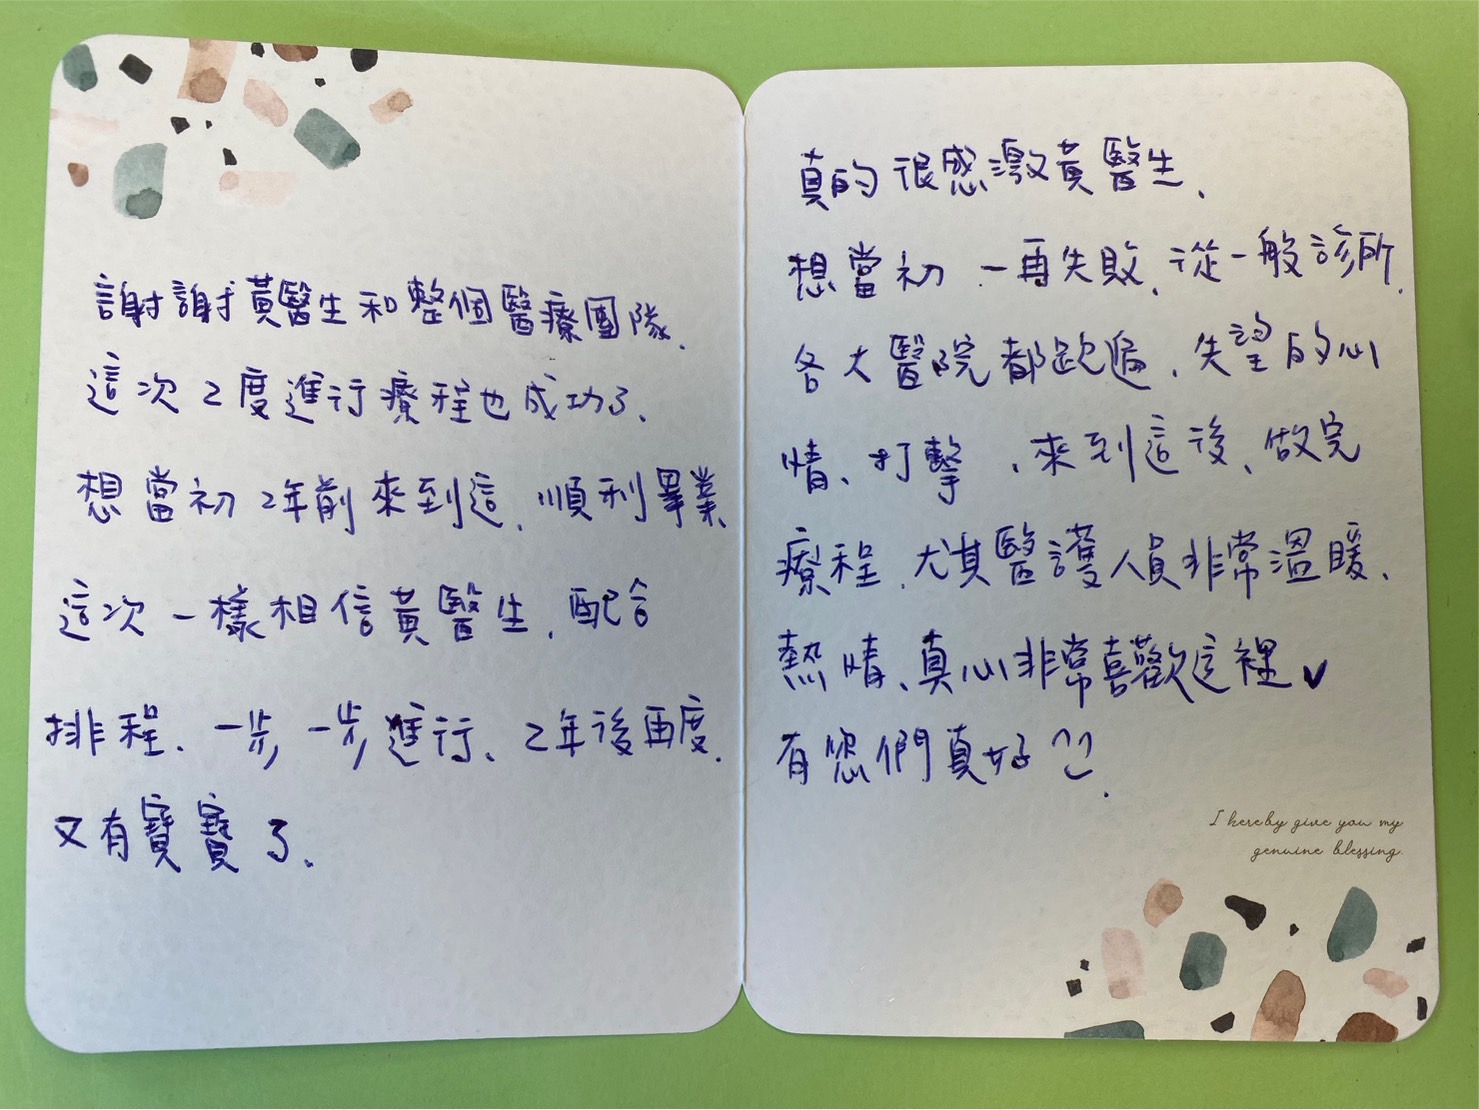 謝謝黃醫生和整個醫療團隊、
這次2度進行療程也成功了、
想當初2年前來到這、順利畢業
這次一樣相信黃醫生、配合
排程、一步一步進行、2年後再度、
又有寶寶了、
真的很感激黃醫生、
想當初一再失敗、從一般診所、
各大醫院都跑遍、失望的心
情、打擊、來到這後、做完
療程、尤其醫護人員非常溫暖、
熱情、真心非常喜歡這裡♥
有您們真好^^
I hereby give you my
genuine blessing.